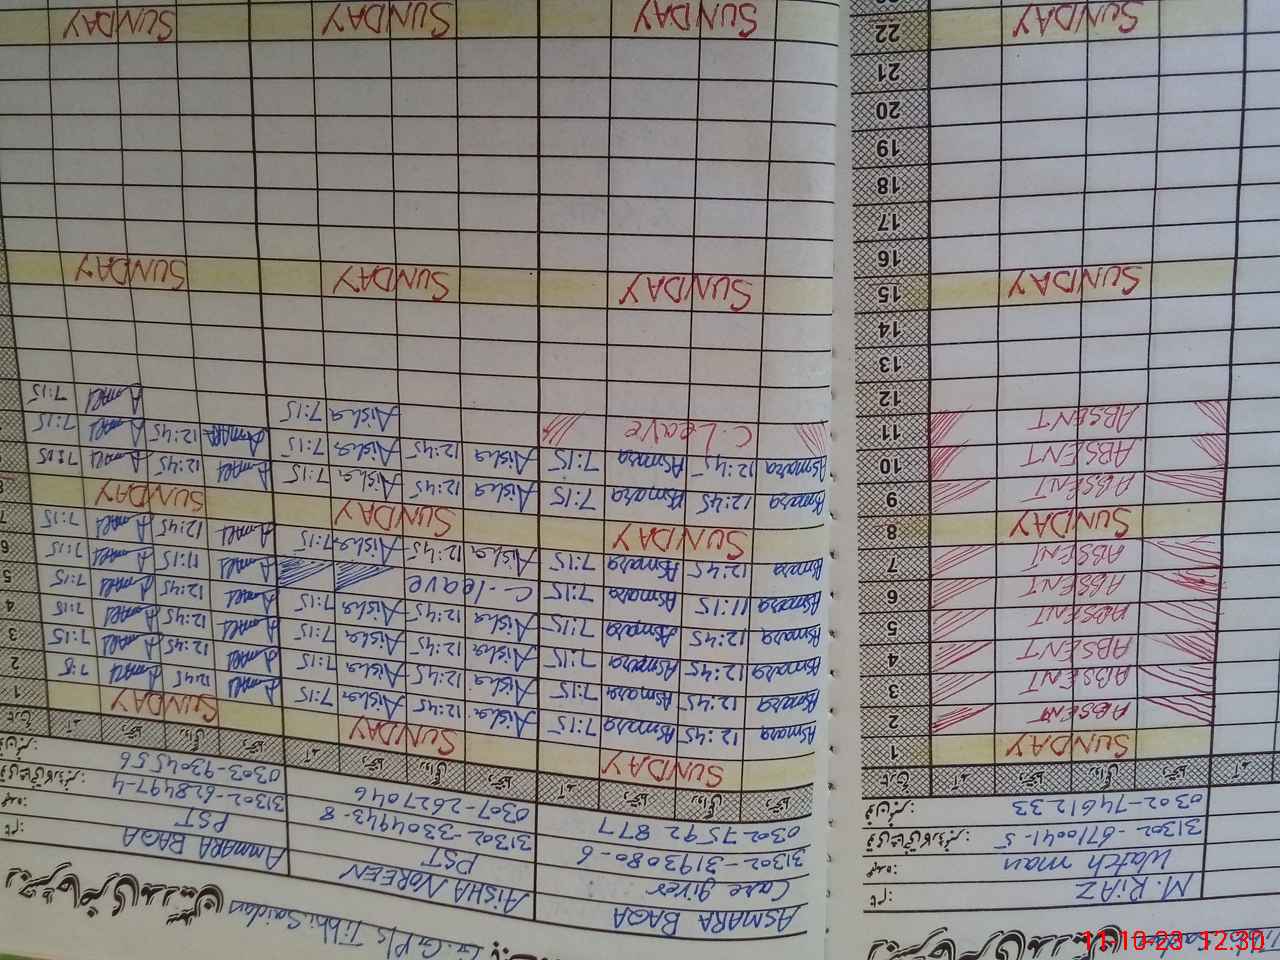 M. RiAZ
Watch man
31302-6710041-5
0302-7461233
1 SUNDAY
2 ABSENT
3 ABSENT
4 ABSENT
5 ABSENT
6 ABSENT
7 ABSENT
8 SUNDAY
9 ABSENT
10 ABSENT
11 ABSENT
12
13
14
15 SUNDAY
16
17
18
19
20
21
22 SUNDAY
G.G.P/s Tibbi Saidan
ASMARA BAGA AISHA NOREEN AMMARA BAGA
Care giver PST PST
31302-3193080-6 31302-3304943-8 31302-6284974-4
0302 7592877 0307-2627046 0303-9304556
SUNDAY SUNDAY SUNDAY 1
Asmara 12:45 Asmara 7:15 Aisha 12:45 Aisha 7:15 Amara 12:45 Amara 7:15 2
Asmara 12:45 Asmara 7:15 Aisha 12:45 Aisha 7:15 Amara 12:45 Amara 7:15 3
Asmara 12:45 Asmara 7:15 Aisha 12:45 Aisha 7:15 Amara 12:45 Amara 7:15 4
Asmara 12:45 Asmara 7:15 Aisha 12:45 Aisha 7:15 Amara 12:45 Amara 7:15 5
Asmara 11:15 Asmara 7:15 C-leave Amara 11:15 Amara 7:15 6
Asmara 12:45 Asmara 7:15 Aisha 12:45 Aisha 7:15 Amara 12:45 Amara 7:15 7
SUNDAY SUNDAY SUNDAY
Asmara 12:45 Asmara 7:15 Aisha 12:45 Aisha 7:15 Amara 12:45 Amara 7:15
Asmara 12:45 Asmara 7:15 Aisha 12:45 Aisha 7:15 Amara 12:45 Amara 7:15
C.Leave Aisha 7:15 Amara 7:15
SUNDAY SUNDAY SUNDAY
SUNDAY SUNDAY SUNDAY
11-10-23 12:30